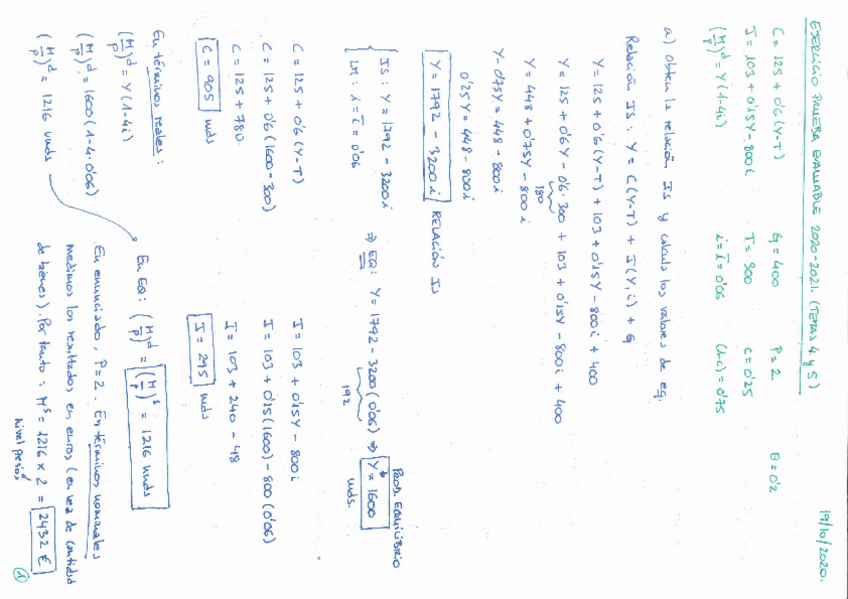 EJERCICIO PRUEBA EVALUABLE 2020-2021. (TEMAS 4 y 5) 19/10/2020.
C = 125 + 0'6 (Y-T) G = 400 P = 2 θ = 0'2
I = 103 + 0'15Y - 800i T = 300 c = 0'25
(M/P)^d = Y(1-4i) i = ī = 0'06 (1-c) = 0'75
a) Obten la relación IS y calcula los valores de eq.
Relación IS: Y = C(Y-T) + I(Y,i) + G
Y = 125 + 0'6 (Y-T) + 103 + 0'15Y - 800i + 400
Y = 125 + 0'6Y - 0'6·300 + 103 + 0'15Y - 800i + 400
180
Y = 448 + 0'75Y - 800i
Y - 0'75Y = 448 - 800i
0'25Y = 448 - 800i
Y = 1792 - 3200i RELACIÓN IS
PROD. EQUILIBRIO
IS: Y = 1792 - 3200i ⇒ EQ: Y = 1792 - 3200(0'06) ⇒ Y* = 1600
LM: i = ī = 0'06 192 unds.
C = 125 + 0'6 (Y-T) I = 103 + 0'15Y - 800i
C = 125 + 0'6 (1600-300) I = 103 + 0'15(1600) - 800(0'06)
C = 125 + 780 I = 103 + 240 - 48
C = 905 unds I = 295 unds
En términos reales:
(M/P)^d = Y(1-4i) En EQ: (M/P)^d = (M/P)^s = 1216 unds
(M/P)^d = 1600(1-4·0'06) En enunciado, P=2. En términos nominales
medimos los resultados en euros (en vez de cantidad
(M/P)^d = 1216 unds de bienes). Por tanto: M^s = 1216 x 2 = 2432 €
nivel precios
1